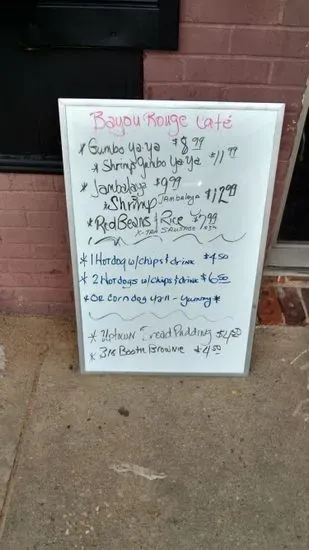 Bayou Rouge Café
* Gumbo Ya-Ya $8.99
* Shrimp Gumbo Ya-Ya $11.99
* Jambalaya $9.99
* Shrimp Jambalaya $12.99
* Red Beans & Rice $7.99
X-TRA SAUSAGE
* 1 Hotdog w/chips & drink $4.50
* 2 Hotdogs w/chips & drink $6.50
* Or corn dog - Yummy *
* Uptown Bread Pudding
* Booth Brownie $4.50